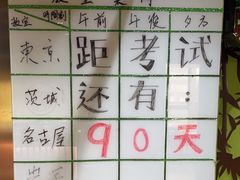 教室 時間割 午前 午後 夕方
東京 距考试
茨城 还有：
名古屋 90天